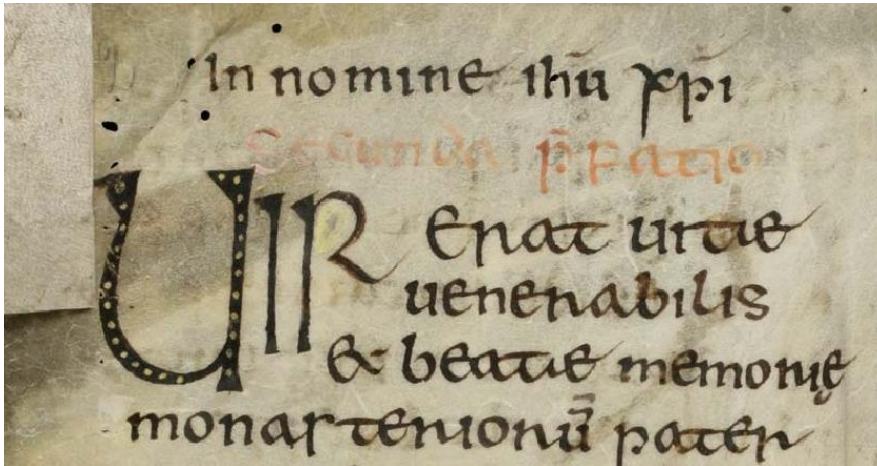 In nomine ihū xp̄i
Secunda p̄fatio
UIR Erat uitae
uenerabilis
& beatae memorię
monasteriorū pater